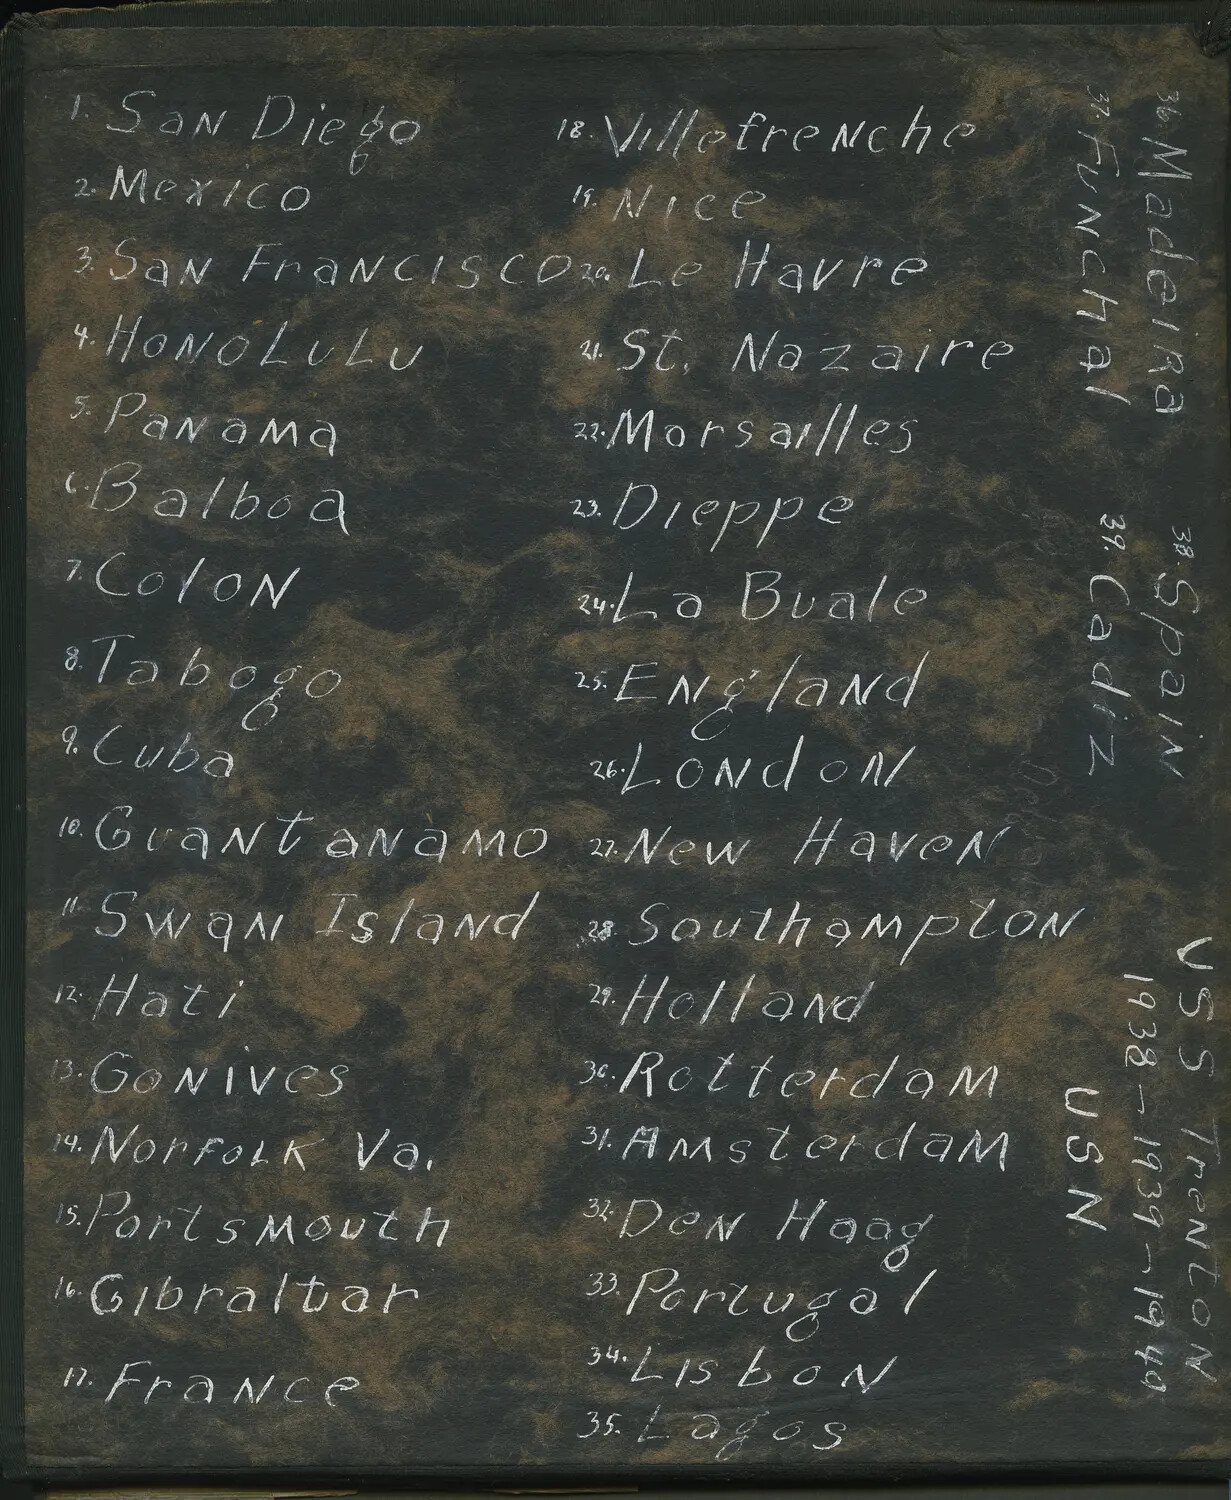 1. San Diego
2. Mexico
3. San Francisco
4. Honolulu
5. Panama
6. Balboa
7. Colon
8. Tabogo
9. Cuba
10. Guantanamo
11. Swan Island
12. Hati
13. Gonives
14. Norfolk Va.
15. Portsmouth
16. Gibraltar
17. France
18. Villefrenche
19. Nice
20. Le Havre
21. St. Nazaire
22. Marsailles
23. Dieppe
24. La Buale
25. England
26. London
27. New Haven
28. Southampton
29. Holland
30. Rotterdam
31. Amsterdam
32. Den Haag
33. Portugal
34. Lisbon
35. Lagos
36. Madeira
37. Funchal
38. Spain
39. Cadiz
USS Trenton
1938-1939-1940
USN